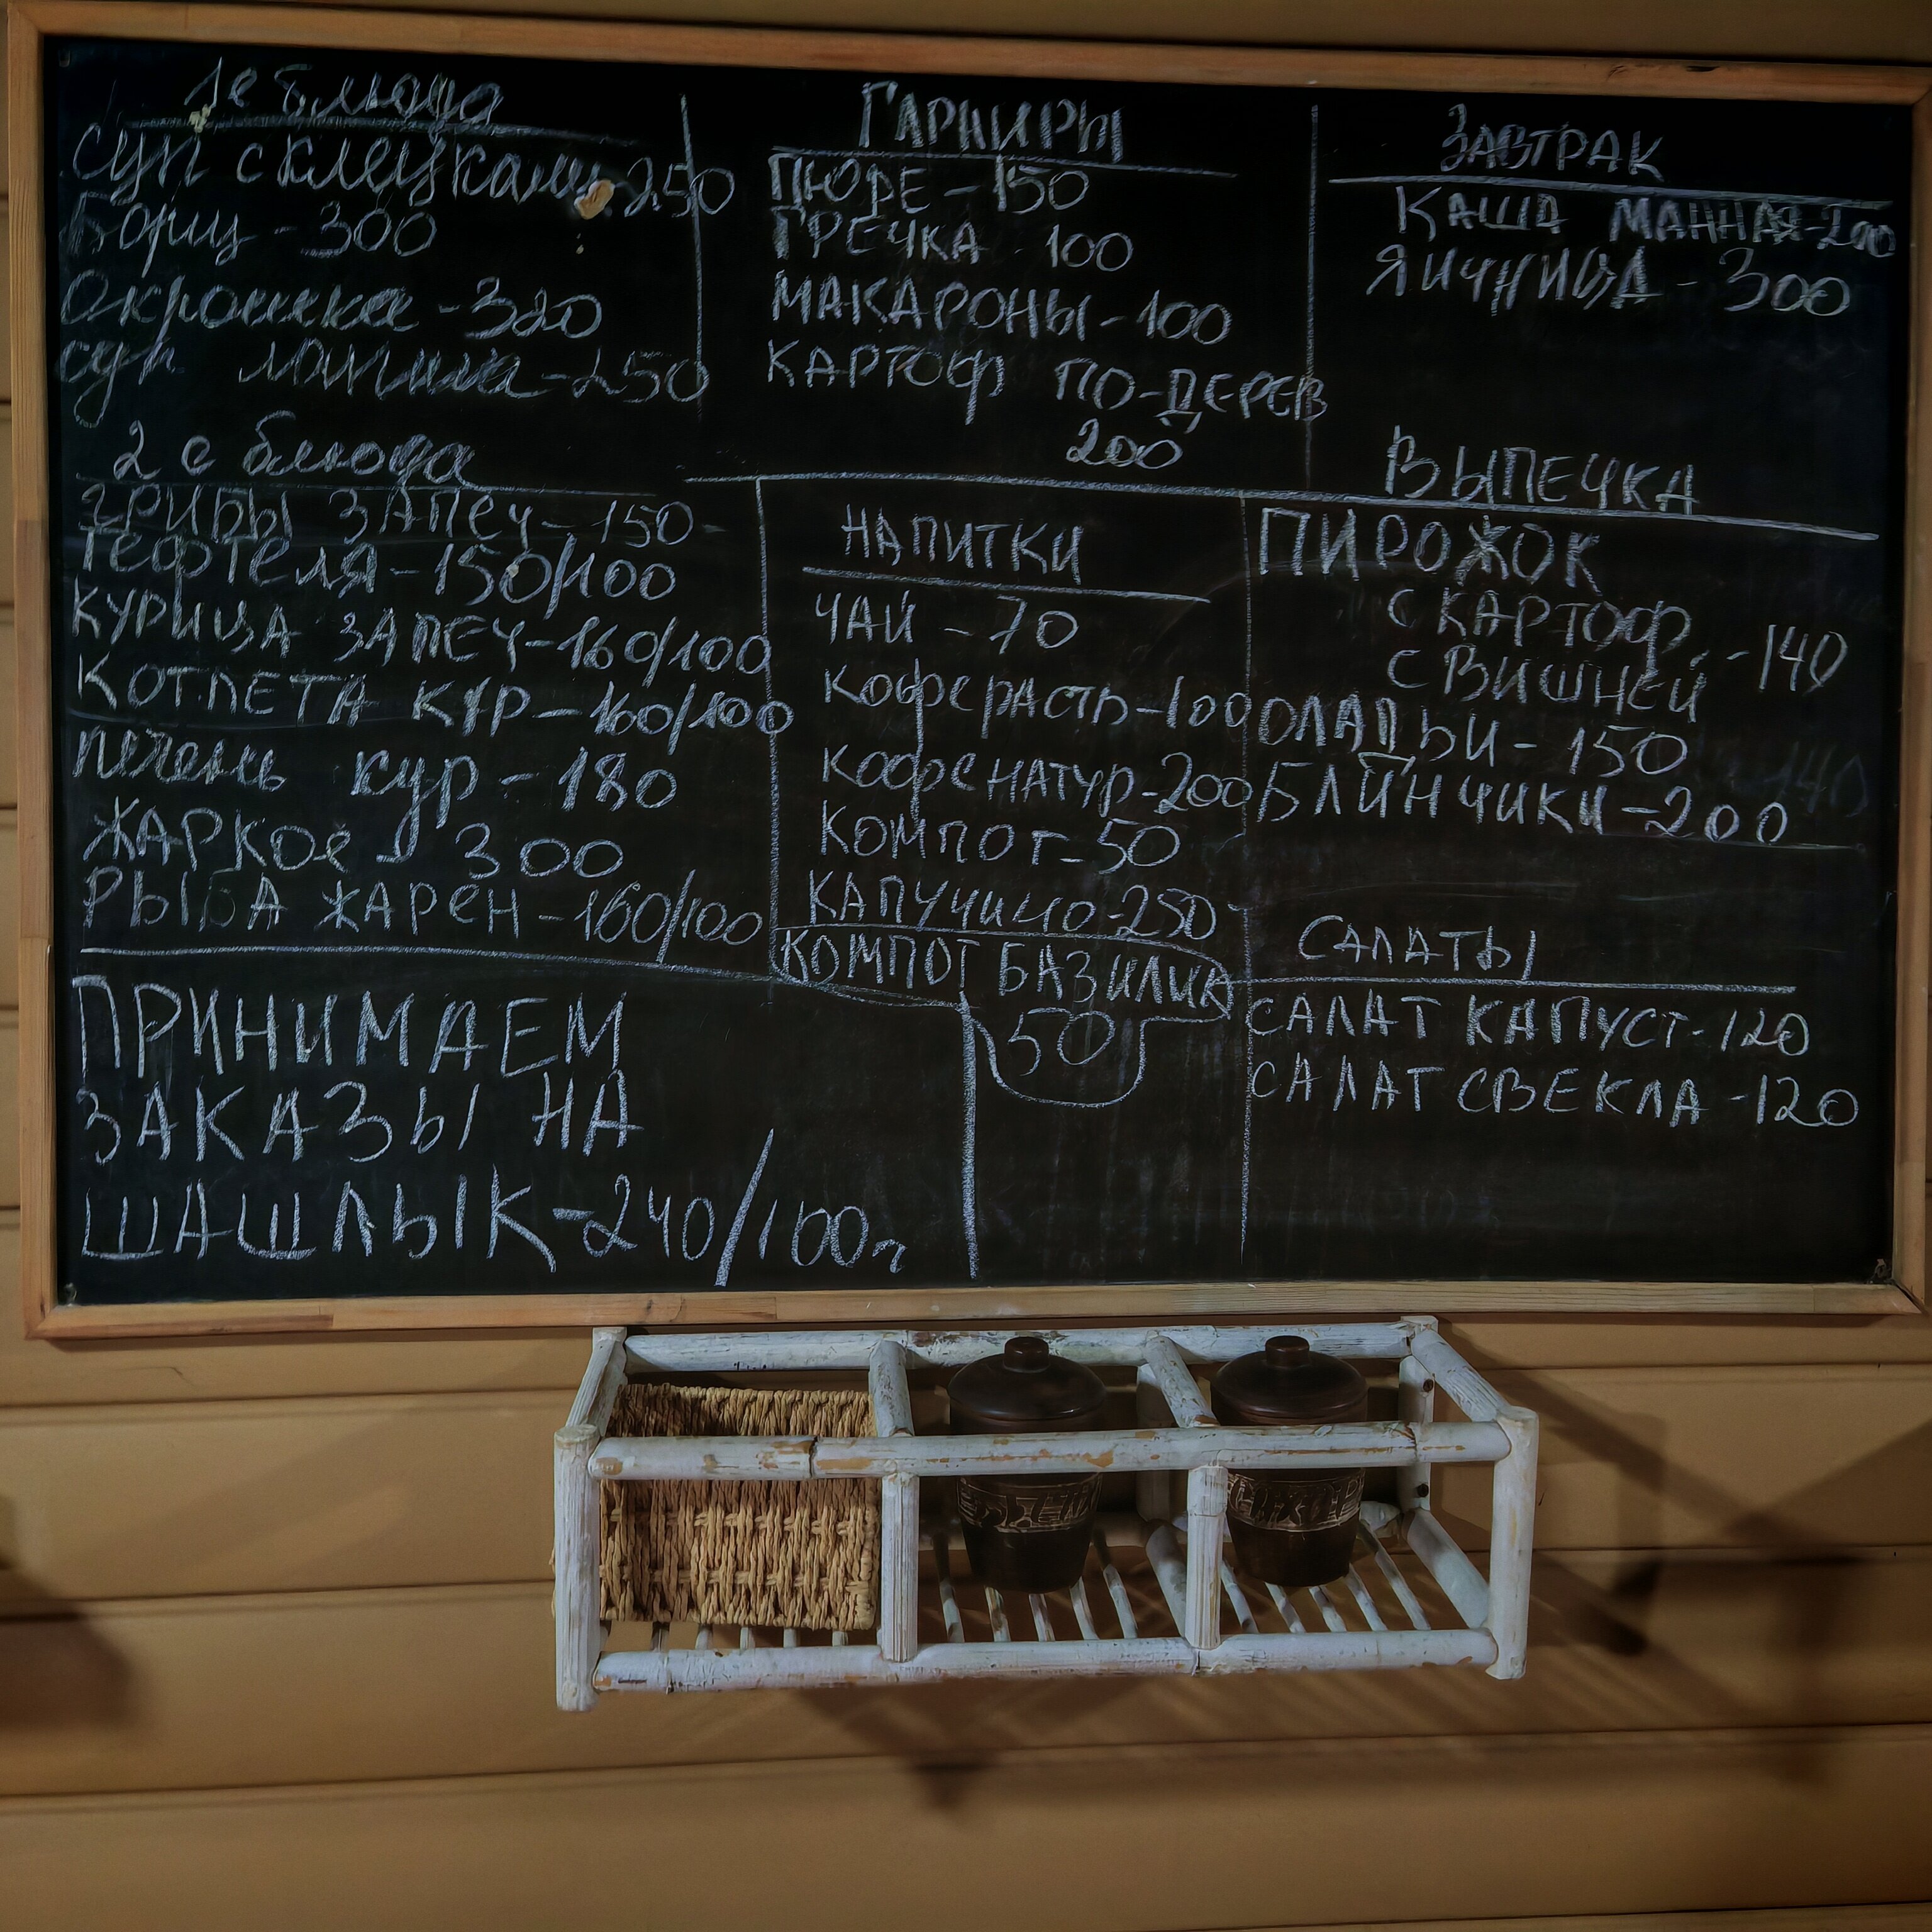 1е блюда
суп с клецками-250
Борщ-300
Окрошка-320
суп лапша-250
2е блюда
ГРИБЫ ЗАПЕЧ-150-
ТЕФТЕЛЯ-150/100
КУРИЦА ЗАПЕЧ-160/100
КОТЛЕТА КУР-160/100
печень кур-180
ЖАРКОЕ-300
РЫБА ЖАРЕН-160/100
ПРИНИМАЕМ
ЗАКАЗЫ НА
ШАШЛЫК-240/100г
ГАРНИРЫ
ПЮРЕ-150
ГРЕЧКА-100
МАКАРОНЫ-100
КАРТОФ ПО-ДЕРЕВ
200
НАПИТКИ
ЧАЙ-70
КОФЕ РАСТВ-100
КОФЕ НАТУР-200
КОМПОТ-50
КАПУЧИНО-250
КОМПОТ БАЗИЛИК
50
ЗАВТРАК
КАША МАННАЯ-200
ЯИЧНИЦА-300
ВЫПЕЧКА
ПИРОЖОК
С КАРТОФ.-140
С ВИШНЕЙ
ОЛАДЬИ-150
БЛИНЧИКИ-200
САЛАТЫ
САЛАТ КАПУСТ-120
САЛАТ СВЕКЛА-120